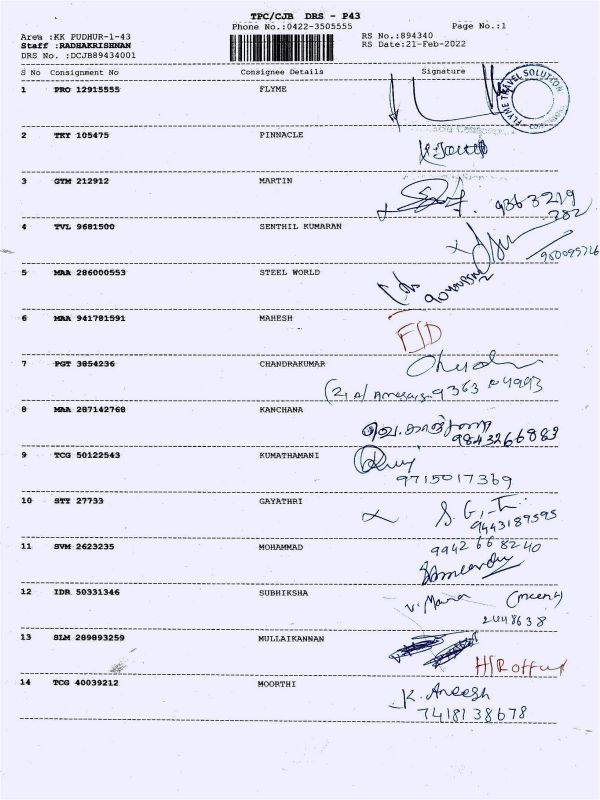 TPC/CJB DRS - P43
Phone No.:0422-3505555 Page No.:1
Area :KK PUDHUR-1-43 RS No.:894340
Staff :RADHAKRISHNAN RS Date:21-Feb-2022
DRS No. :DCJB89434001
S No Consignment No Consignee Details Signature
1 PRO 12915555 FLYME
FLYME TRAVEL SOLUTION
2 TKY 105475 PINNACLE
3 GTM 212912 MARTIN
9363219
282
4 TVL 9681500 SENTHIL KUMARAN
5 MAA 286000553 STEEL WORLD
6 MAA 941781591 MAHESH
7 PGT 3854236 CHANDRAKUMAR
8 MAA 287142768 KANCHANA
9843266883
9 TCG 50122543 KUMATHAMANI
9715017369
10 STY 27733 GAYATHRI
9443189595
11 SVM 2623235 MOHAMMAD
9942668240
12 IDR 50331346 SUBHIKSHA
13 SLM 289893259 MULLAIKANNAN
14 TCG 40039212 MOORTHI
K. Aneesh
7418138678